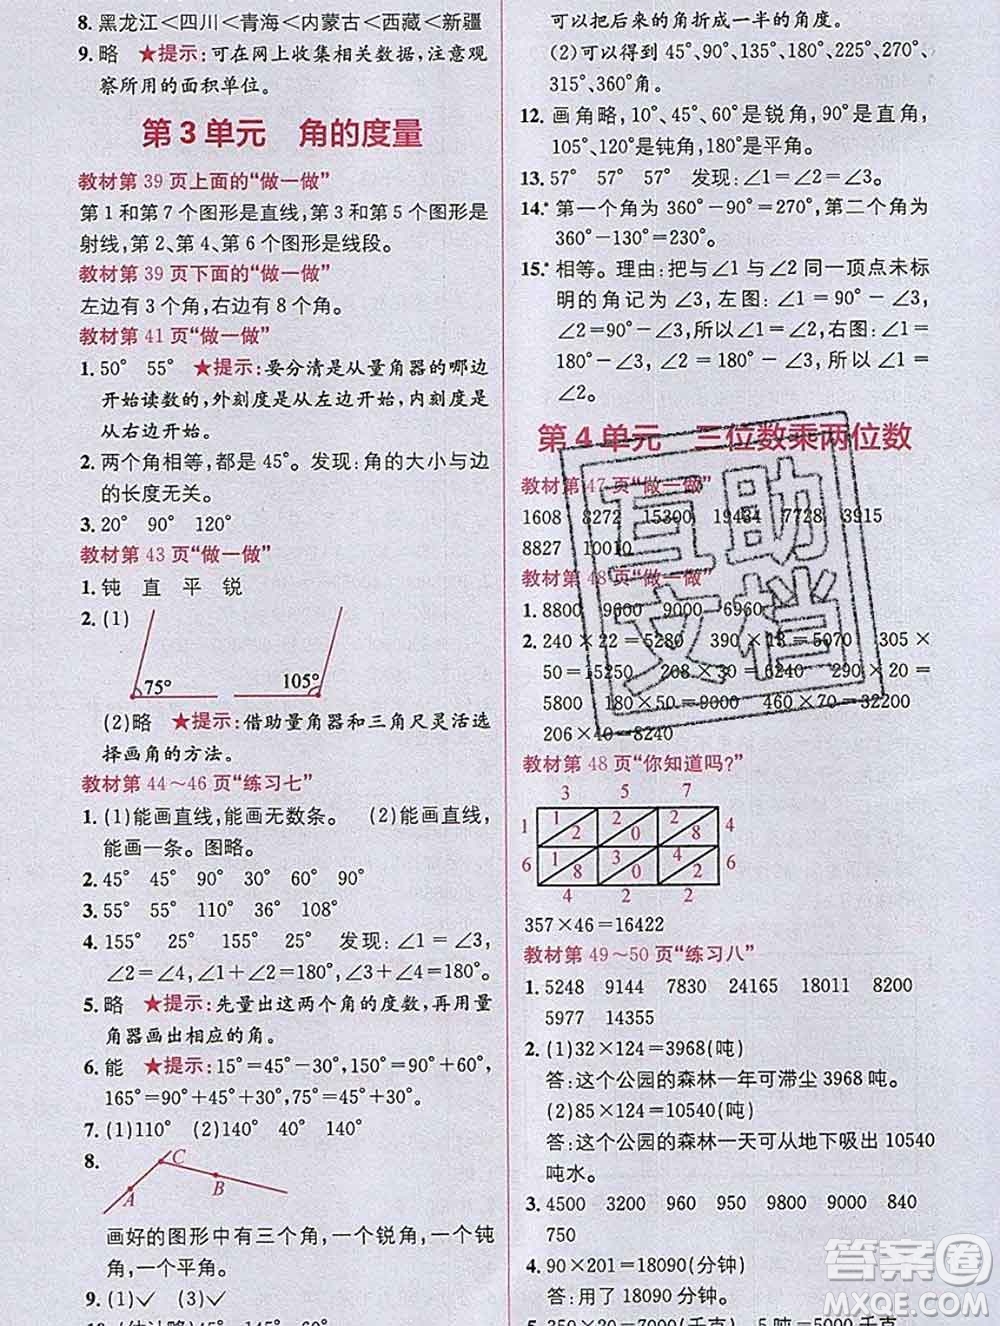 8. 黑龙江＜四川＜青海＜内蒙古＜西藏＜新疆
9. 略 ★提示:可在网上收集相关数据,注意观
察所用的面积单位。
第 3 单元 角的度量
教材第 39 页上面的“做一做”
第 1 和第 7 个图形是直线,第 3 和第 5 个图形是
射线,第 2、第 4、第 6 个图形是线段。
教材第 39 页下面的“做一做”
左边有 3 个角,右边有 8 个角。
教材第 41 页“做一做”
1. 50° 55° ★提示:要分清是从量角器的哪边
开始读数的,外刻度是从左边开始,内刻度是
从右边开始。
2. 两个角相等,都是 45°。发现:角的大小与边
的长度无关。
3. 20° 90° 120°
教材第 43 页“做一做”
1. 钝 直 平 锐
2. (1)
75° 105°
(2)略 ★提示:借助量角器和三角尺灵活选
择画角的方法。
教材第 44～46 页“练习七”
1. (1)能画直线,能画无数条。 (2)能画直线,
能画一条。图略。
2. 45° 45° 90° 30° 60° 90°
3. 55° 55° 110° 70° 36° 108°
4. 155° 25° 155° 25° 发现:∠1=∠3,
∠2=∠4,∠1+∠2=180°,∠3+∠4=180°。
5. 略 ★提示:先量出这两个角的度数,再用量
角器画出相应的角。
6. 能 ★提示:15°=45°-30°,150°=90°+60°,
165°=90°+45°+30°,120°=90°+30°。
7. (1)110° (2)140° 40° 140°
8.
C
A B
画好的图形中有三个角,一个锐角,一个钝
角,一个平角。
9. (1)✓ (3)✓
可以把后来的角折成一半的角度。
(2)可以得到 45°、90°、135°、180°、225°、270°、
315°、360°角。
12. 画角略,10°、45°、60°是锐角,90°是直角,
105°、120°是钝角,180°是平角。
13. 57° 57° 57° 发现:∠1=∠2=∠3。
14.* 第一个角为 360°-90°=270°,第二个角为
360°-130°=230°。
15.* 相等。理由:把与∠1 与∠2 同一顶点未标
明的角记为∠3,左图:∠1=90°-∠3,
∠2=90°-∠3,所以∠1=∠2,右图:∠1=
180°-∠3,∠2=180°-∠3,所以∠1=
∠2。
第 4 单元 三位数乘两位数
教材第 47 页“做一做”
1608 8272 15300 19434 7728 3915
8827 10010
教材第 48 页“做一做”
1. 8800 9600 9000 6960
2. 240×22=5280 390×13=5070 305×
50=15250 208×30=6240 290×20=
5800 180×50=9000 460×70=32200
206×40=8240
教材第 48 页“你知道吗?”
3 5 7
1 1 2 2 0 2 8 4
6 1 8 3 0 4 2 6
4 2 2
357×46=16422
教材第 49～50 页“练习八”
1. 5248 9144 7830 24165 18011 8200
5977 14355
2. (1)32×124=3968(吨)
答:这个公园的森林一年可滞尘 3968 吨。
(2)85×124=10540(吨)
答:这个公园的森林一天可从地下吸出 10540
吨水。
3. 4500 3200 960 950 9800 9000 840
750
4. 90×201=18090(分钟)
答:用了 18090 分钟。
互助
文档
答案圈
MXQE.COM